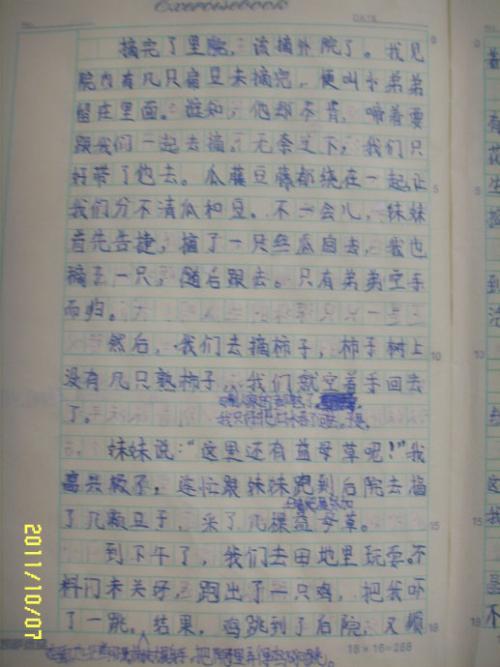 Exercisebook
DATE
摘完了里院，该摘外院了。我见
院内有几只扁豆未摘完，便叫小弟弟
留在里面。谁知，他却不肯，嚷着要
跟我们一起去摘，无奈之下，我们只
好带了他去。瓜藤豆藤都绕在一起让
我们分不清瓜和豆。不一会儿，妹妹
首先告捷，摘了一只丝瓜回去，我也
摘了一只，随后跟去。只有弟弟空手
而归。
然后，我们去摘柿子，柿子树上
没有几只熟柿子，我们就空着手回去
了。
妹妹说：“这里还有益母草呢！”我
高兴极了，连忙跟妹妹跑到后院去摘
了几颗豆子，采了几棵益母草。
到下午了，我们去田地里玩耍。不
料门未关好，跑出了一只鸡，把我吓
了一跳。结果，鸡跳到了后院，又顺
18×16=288
2011/10/07